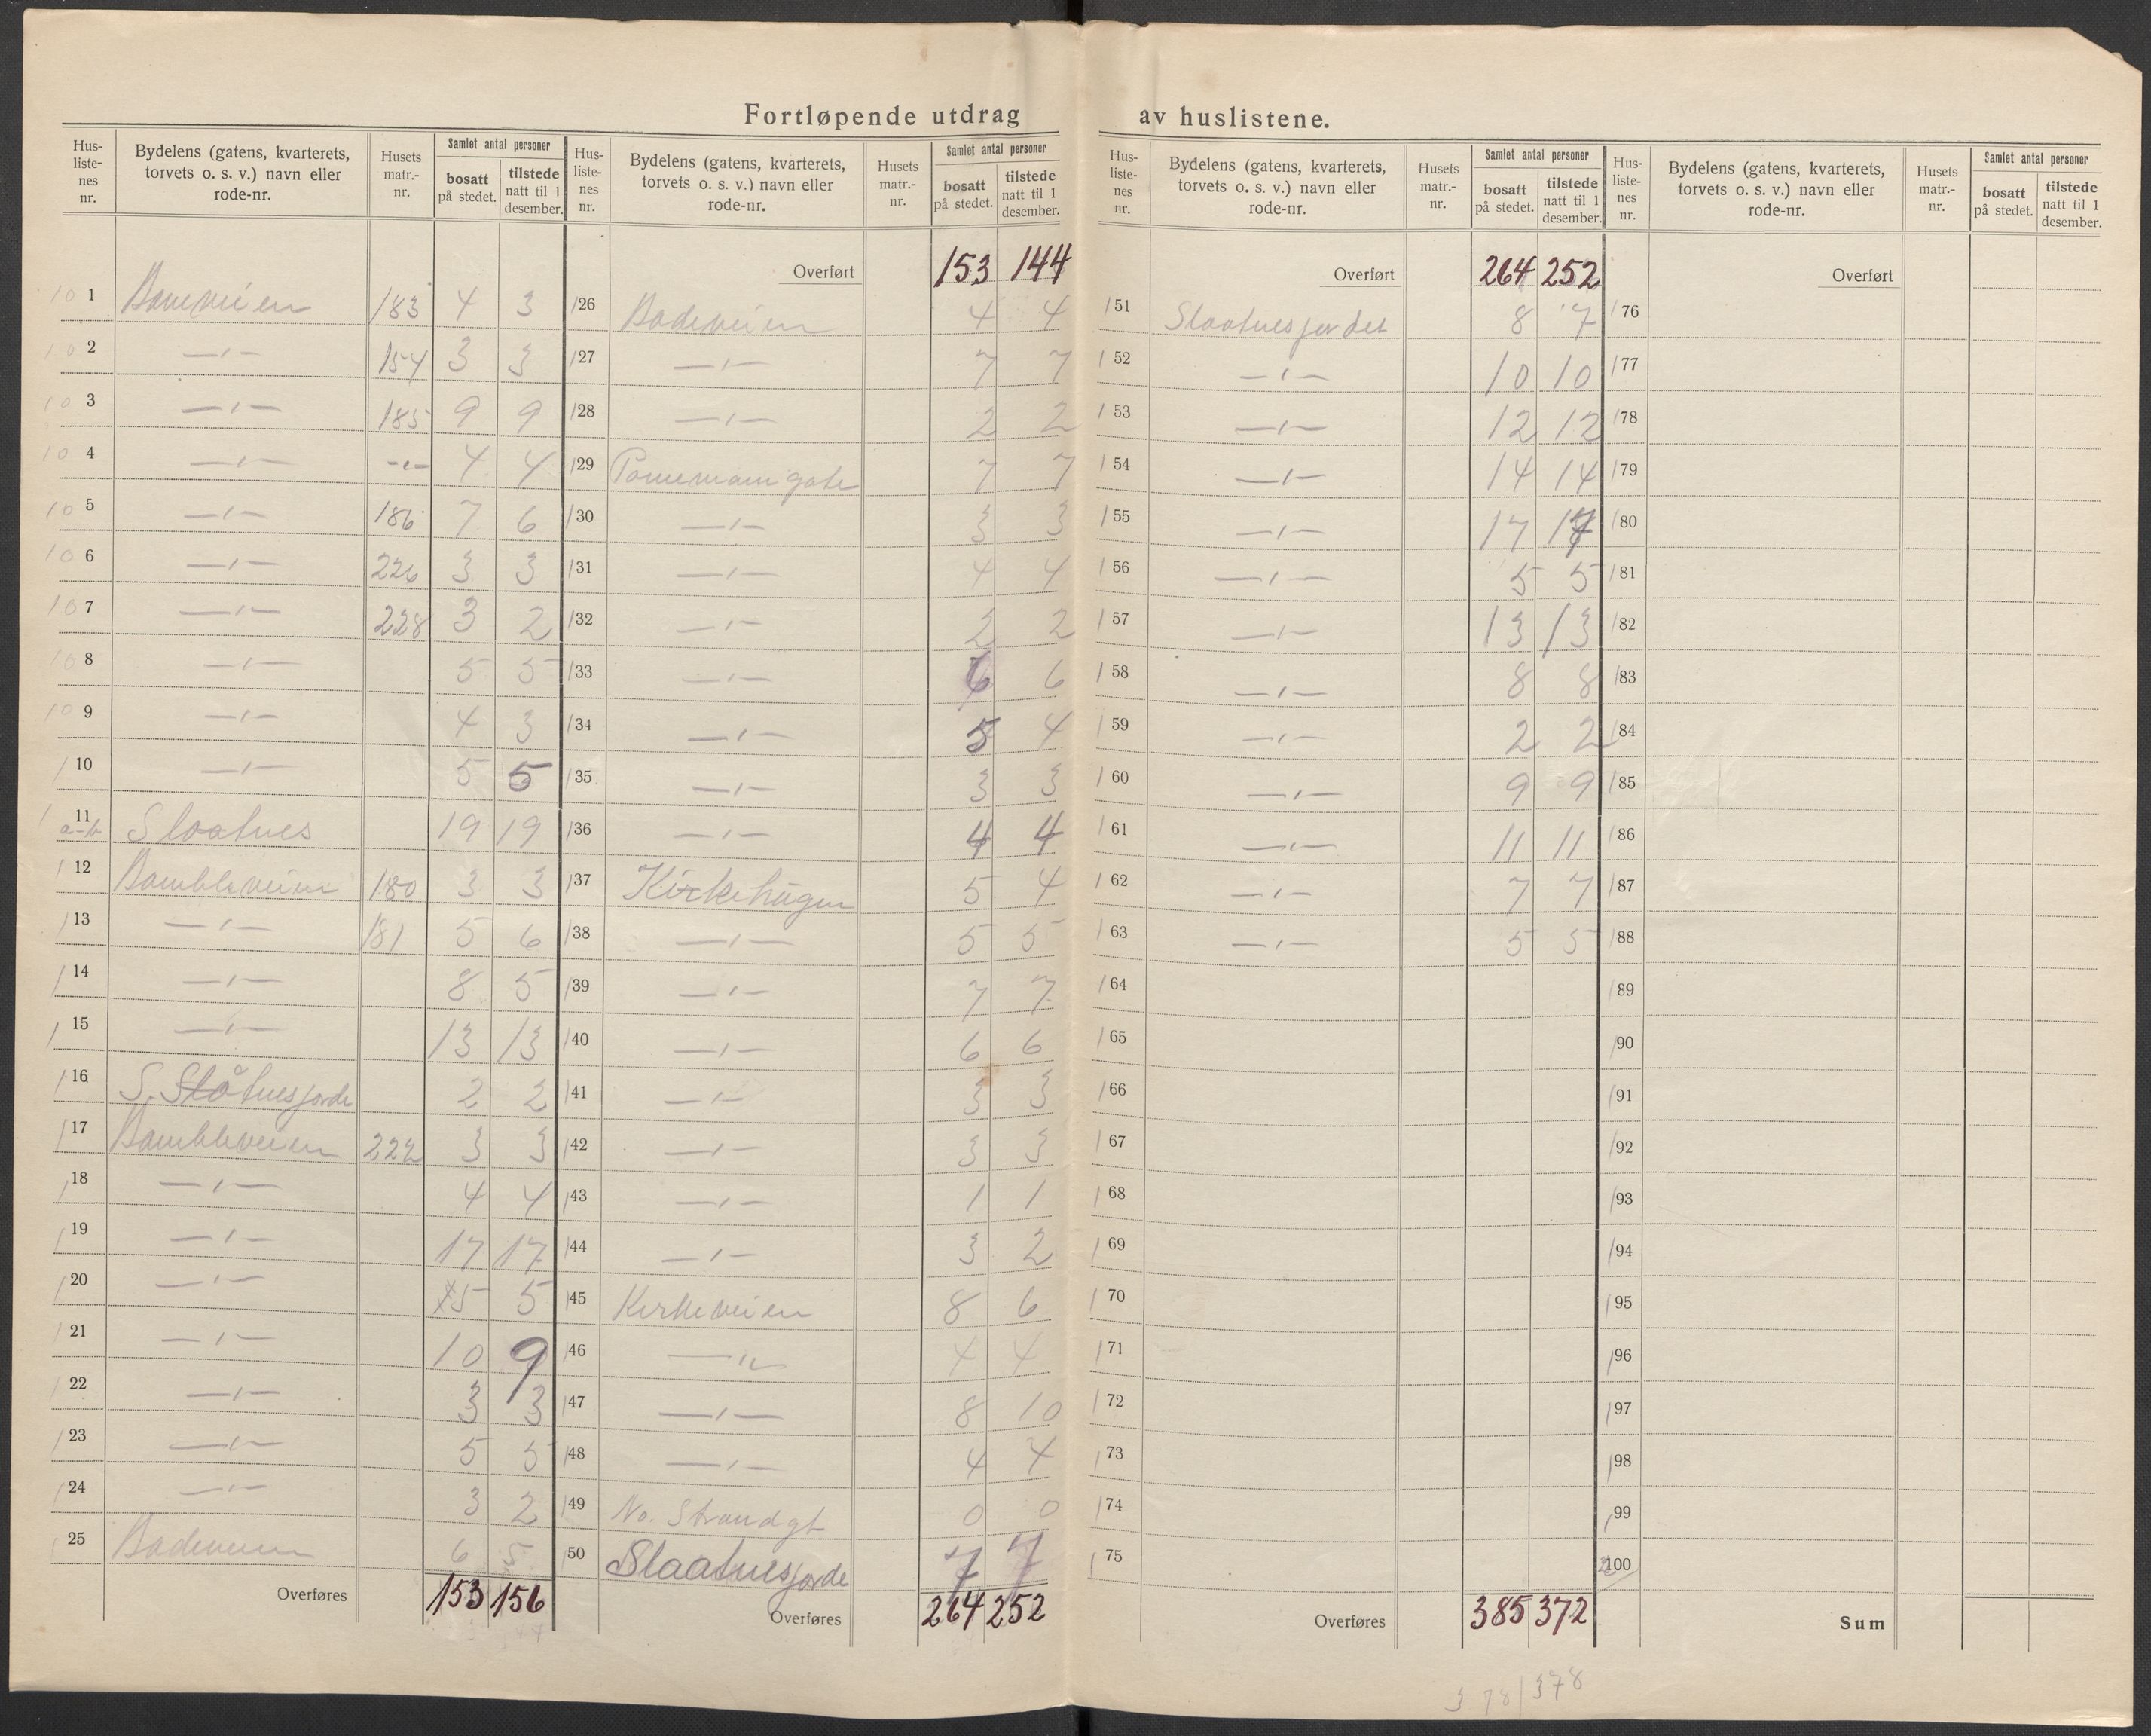 Fortløpende utdrag av huslistene.
Hus-liste-nes nr. | Bydelens (gatens, kvarterets, torvets o. s. v.) navn eller rode-nr. | Husets matr.-nr. | Samlet antal personer | bosatt på stedet. | tilstede natt til 1 desember.
10 1 Baneveien 183 4 3
10 2 —„— 154 3 3
10 3 —„— 185 9 9
10 4 —„— -„- 4 4
10 5 —„— 186 7 6
10 6 —„— 226 3 3
10 7 —„— 228 3 2
10 8 —„— 5 5
10 9 —„— 4 3
1 10 —„— 5 5
1 11 a-b Slaatnes 19 19
1 12 Bambleveien 180 3 3
1 13 —„— 181 5 6
1 14 —„— 8 5
1 15 —„— 13 13
1 16 S. Slåtnesjorde 2 2
1 17 Bambleveien 222 3 3
1 18 —„— 4 4
1 19 —„— 17 17
1 20 —„— 5 5
1 21 —„— 10 9
1 22 —„— 3 3
1 23 —„— 5 5
1 24 —„— 3 2
1 25 Badeveien 6 5
Overføres 153 156
Hus-liste-nes nr. | Bydelens (gatens, kvarterets, torvets o. s. v.) navn eller rode-nr. | Husets matr.-nr. | Samlet antal personer | bosatt på stedet. | tilstede natt til 1 desember.
Overført 153 144
126 Badeveien 4 4
127 —„— 7 7
128 —„— 2 2
129 gate 7 7
130 —„— 3 3
131 —„— 4 4
132 —„— 2 2
133 —„— 6 6
134 —„— 5 4
135 —„— 3 3
136 —„— 4 4
137 Kirkehaugen 5 4
138 —„— 5 5
139 —„— 7 7
140 —„— 6 6
141 —„— 3 3
142 —„— 3 3
143 —„— 1 1
144 —„— 3 2
145 Kirkeveien 8 6
146 —„— 4 4
147 —„— 8 10
148 —„— 4 4
149 No. Strandgt 0 0
150 Slaatnesjorde 7 7
Overføres 264 252
Hus-liste-nes nr. | Bydelens (gatens, kvarterets, torvets o. s. v.) navn eller rode-nr. | Husets matr.-nr. | Samlet antal personer | bosatt på stedet. | tilstede natt til 1 desember.
Overført 264 252
151 Slaatnesjordet 8 7
152 —„— 10 10
153 —„— 12 12
154 —„— 14 14
155 —„— 17 17
156 —„— 5 5
157 —„— 13 13
158 —„— 8 8
159 —„— 2 2
160 —„— 9 9
161 —„— 11 11
162 —„— 7 7
163 —„— 5 5
164
165
166
167
168
169
170
171
172
173
174
175
Overføres 385 372
378/378
Hus-liste-nes nr. | Bydelens (gatens, kvarterets, torvets o. s. v.) navn eller rode-nr. | Husets matr.-nr. | Samlet antal personer | bosatt på stedet. | tilstede natt til 1 desember.
Overført
176
177
178
179
180
181
182
183
184
185
186
187
188
189
190
191
192
193
194
195
196
197
198
199
100
Sum